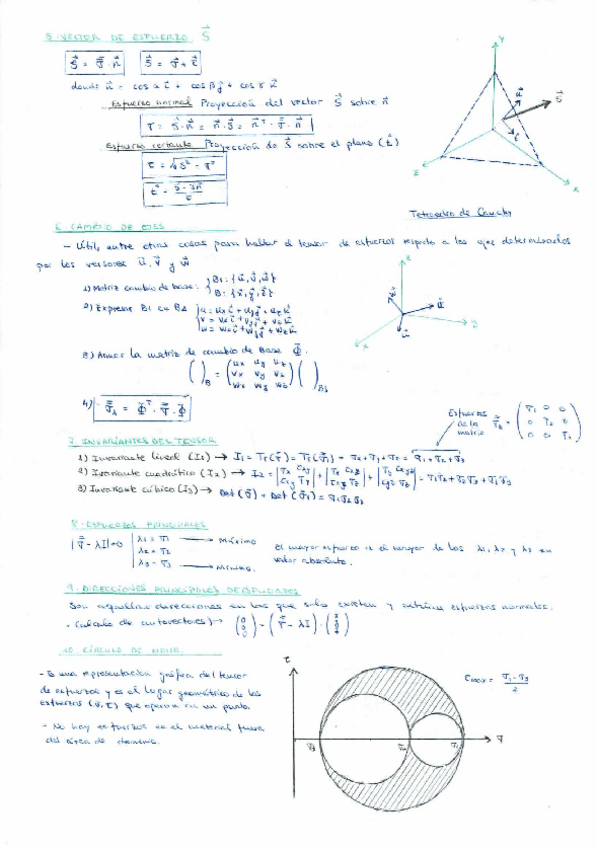 5. VECTOR DE ESFUERZO S⃗
S⃗ = σ̿ · n⃗   S⃗ = σ⃗ + τ⃗
donde n⃗ = cos α i⃗ + cos β j⃗ + cos γ k⃗
Esfuerzo normal Proyección del vector S⃗ sobre n⃗
σ = S⃗ · n⃗ = n⃗ · S⃗ = n⃗ᵀ · σ̿ · n⃗
Esfuerzo cortante Proyección de S⃗ sobre el plano (t⃗)
τ = √S² - σ²
Y
X
Z
Tetraedro de Cauchy
6. CAMBIO DE EJES
- Útil, entre otras cosas para hallar el tensor de esfuerzos respecto a los ejes determinados
por los versores u⃗, v⃗ y w⃗
1) Matriz cambio de base: { B1: {u⃗, v⃗, w⃗}
B: {x⃗, y⃗, z⃗}
2) Expresar B1 en B { u = ux i⃗ + uy j⃗ + uz k⃗
v = vx i⃗ + vy j⃗ + vz k⃗
w = wx i⃗ + wy j⃗ + wz k⃗
3) Armar la matriz de cambio de base Φ̿.
( )B = ( ux uy uz
vx vy vz
wx wy wz ) ( )B1
4) σ̿₁ = Φ̿ᵀ · σ̿ · Φ̿
Esfuerzos
de la
matriz
( σ1 0 0
0 σ2 0
0 0 σ3 )
7. INVARIANTES DEL TENSOR
1) Invariante lineal (I1) → I1 = Tr(σ̿) = Tr(σ̿₁) = σx + σy + σz = σ1 + σ2 + σ3
2) Invariante cuadrático (I2) → I2 = = σ1σ2 + σ2σ3 + σ1σ3
3) Invariante cúbico (I3) → Det(σ̿) = Det(σ̿₁) = σ1σ2σ3
8. ESFUERZOS PRINCIPALES
|σ̿ - λI| = 0 | λ1 = σ1 → Máximo
λ2 = σ2
λ3 = σ3 → Mínimo.
El mayor esfuerzo es el mayor de los λ1, λ2 y λ3 en
valor absoluto.
9. DIRECCIONES PRINCIPALES DE ESFUERZOS
Son aquellas direcciones en las que solo existen y actúan esfuerzos normales.
· (cálculo de autovectores) → ( 0 0 0 ) = ( σ̿ - λI ) ·
10. CÍRCULO DE MOHR
- Es una representación gráfica del tensor
de esfuerzos y es el lugar geométrico de los
esfuerzos (σ, τ) que operan en un punto.
- No hay esfuerzos en el material fuera
del área de dominio.
τ
σ3 σ2 σ1 σ
τmax = σ1 - σ3 / 2